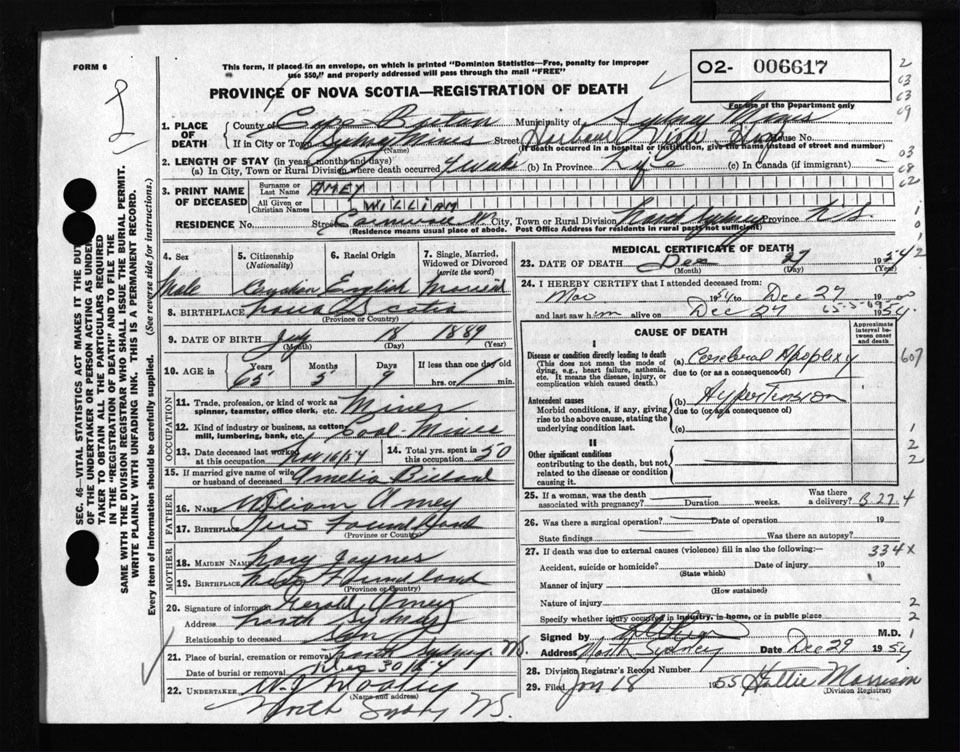 FORM 6
This form, if placed in an envelope, on which is printed "Dominion Statistics—Free, penalty for improper
use $50," and properly addressed will pass through the mail "FREE"
O2- 006617
For use of the Department only
PROVINCE OF NOVA SCOTIA—REGISTRATION OF DEATH
1. PLACE OF DEATH
County of Cape Breton Municipality of Sydney Mines
If in City or Town Sydney Mines (Name) Street Harbour View Hosp House No.
(If death occurred in a hospital or institution, give the name instead of street and number)
2. LENGTH OF STAY (in years, months and days)
(a) In City, Town or Rural Division where death occurred 4 weeks (b) In Province Life (c) In Canada (if immigrant) —
3. PRINT NAME OF DECEASED
Surname or Last Name AMEY
All Given or Christian Names WILLIAM
RESIDENCE No. Street City, Town or Rural Division North Sydney Province N.S.
(Residence means usual place of abode. Post Office Address for residents in rural parts not sufficient)
4. Sex Male
5. Citizenship (Nationality) Canadian
6. Racial Origin English
7. Single, Married, Widowed or Divorced (write the word) Married
8. BIRTHPLACE Nova Scotia
(Province or Country)
9. DATE OF BIRTH July 18 1889
(Month) (Day) (Year)
10. AGE in Years 65 Months 5 Days 9 If less than one day old hrs. or min.
OCCUPATION
11. Trade, profession, or kind of work as spinner, teamster, office clerk, etc. Miner
12. Kind of industry or business, as cotton mill, lumbering, bank, etc. Coal-Mines
13. Date deceased last worked at this occupation Nov 16/54
14. Total yrs. spent in this occupation 50
15. If married give name of wife or husband of deceased Amelia
FATHER
16. NAME William Amey
17. BIRTHPLACE New Foundland
(Province or Country)
MOTHER
18. MAIDEN NAME
19. BIRTHPLACE New Foundland
(Province or Country)
20. Signature of informant Gerald Amey
Address North Sydney
Relationship to deceased Son
21. Place of burial, cremation or removal North Sydney N.S.
Date of burial or removal Dec 30 1954
22. UNDERTAKER
(Name and address)
North Sydney N.S.
MEDICAL CERTIFICATE OF DEATH
23. DATE OF DEATH Dec 27 1954
(Month) (Day) (Year)
24. I HEREBY CERTIFY that I attended deceased from:
Nov 1954 to Dec 27 19
and last saw him alive on Dec 27 1954
65-5-09
CAUSE OF DEATH
Approximate interval between onset and death
I
Disease or condition directly leading to death
(This does not mean the mode of dying, e.g., heart failure, asthenia, etc. It means the disease, injury, or complication which caused death.)
(a) Cerebral Apoplexy
due to (or as a consequence of)
Antecedent causes
Morbid conditions, if any, giving rise to the above cause, stating the underlying condition last.
(b) Hypertension
due to (or as a consequence of)
(c)
II
Other significant conditions
contributing to the death, but not related to the disease or condition causing it.
25. If a woman, was the death associated with pregnancy? Duration weeks. Was there a delivery?
26. Was there a surgical operation? Date of operation 19
State findings Was there an autopsy?
27. If death was due to external causes (violence) fill in also the following:— 334X
Accident, suicide or homicide? Date of injury 19
(State which)
Manner of injury
(How sustained)
Nature of injury
Specify whether injury occurred in industry, in home, or in public place
Signed by M.D.
Address North Sydney Date Dec 29 1954
28. Division Registrar's Record Number
29. Filed Jan 18 1955 Hattie Morrison
(Division Registrar)
SEC. 46—VITAL STATISTICS ACT MAKES IT THE DUTY
OF THE UNDERTAKER OR PERSON ACTING AS UNDER-
TAKER TO OBTAIN ALL THE PARTICULARS REQUIRED
IN THE "REGISTRATION OF DEATH" AND TO FILE THE
SAME WITH THE DIVISION REGISTRAR WHO SHALL ISSUE THE BURIAL PERMIT.
WRITE PLAINLY WITH UNFADING INK. THIS IS A PERMANENT RECORD.
Every item of information should be carefully supplied. (See reverse side for instructions.)